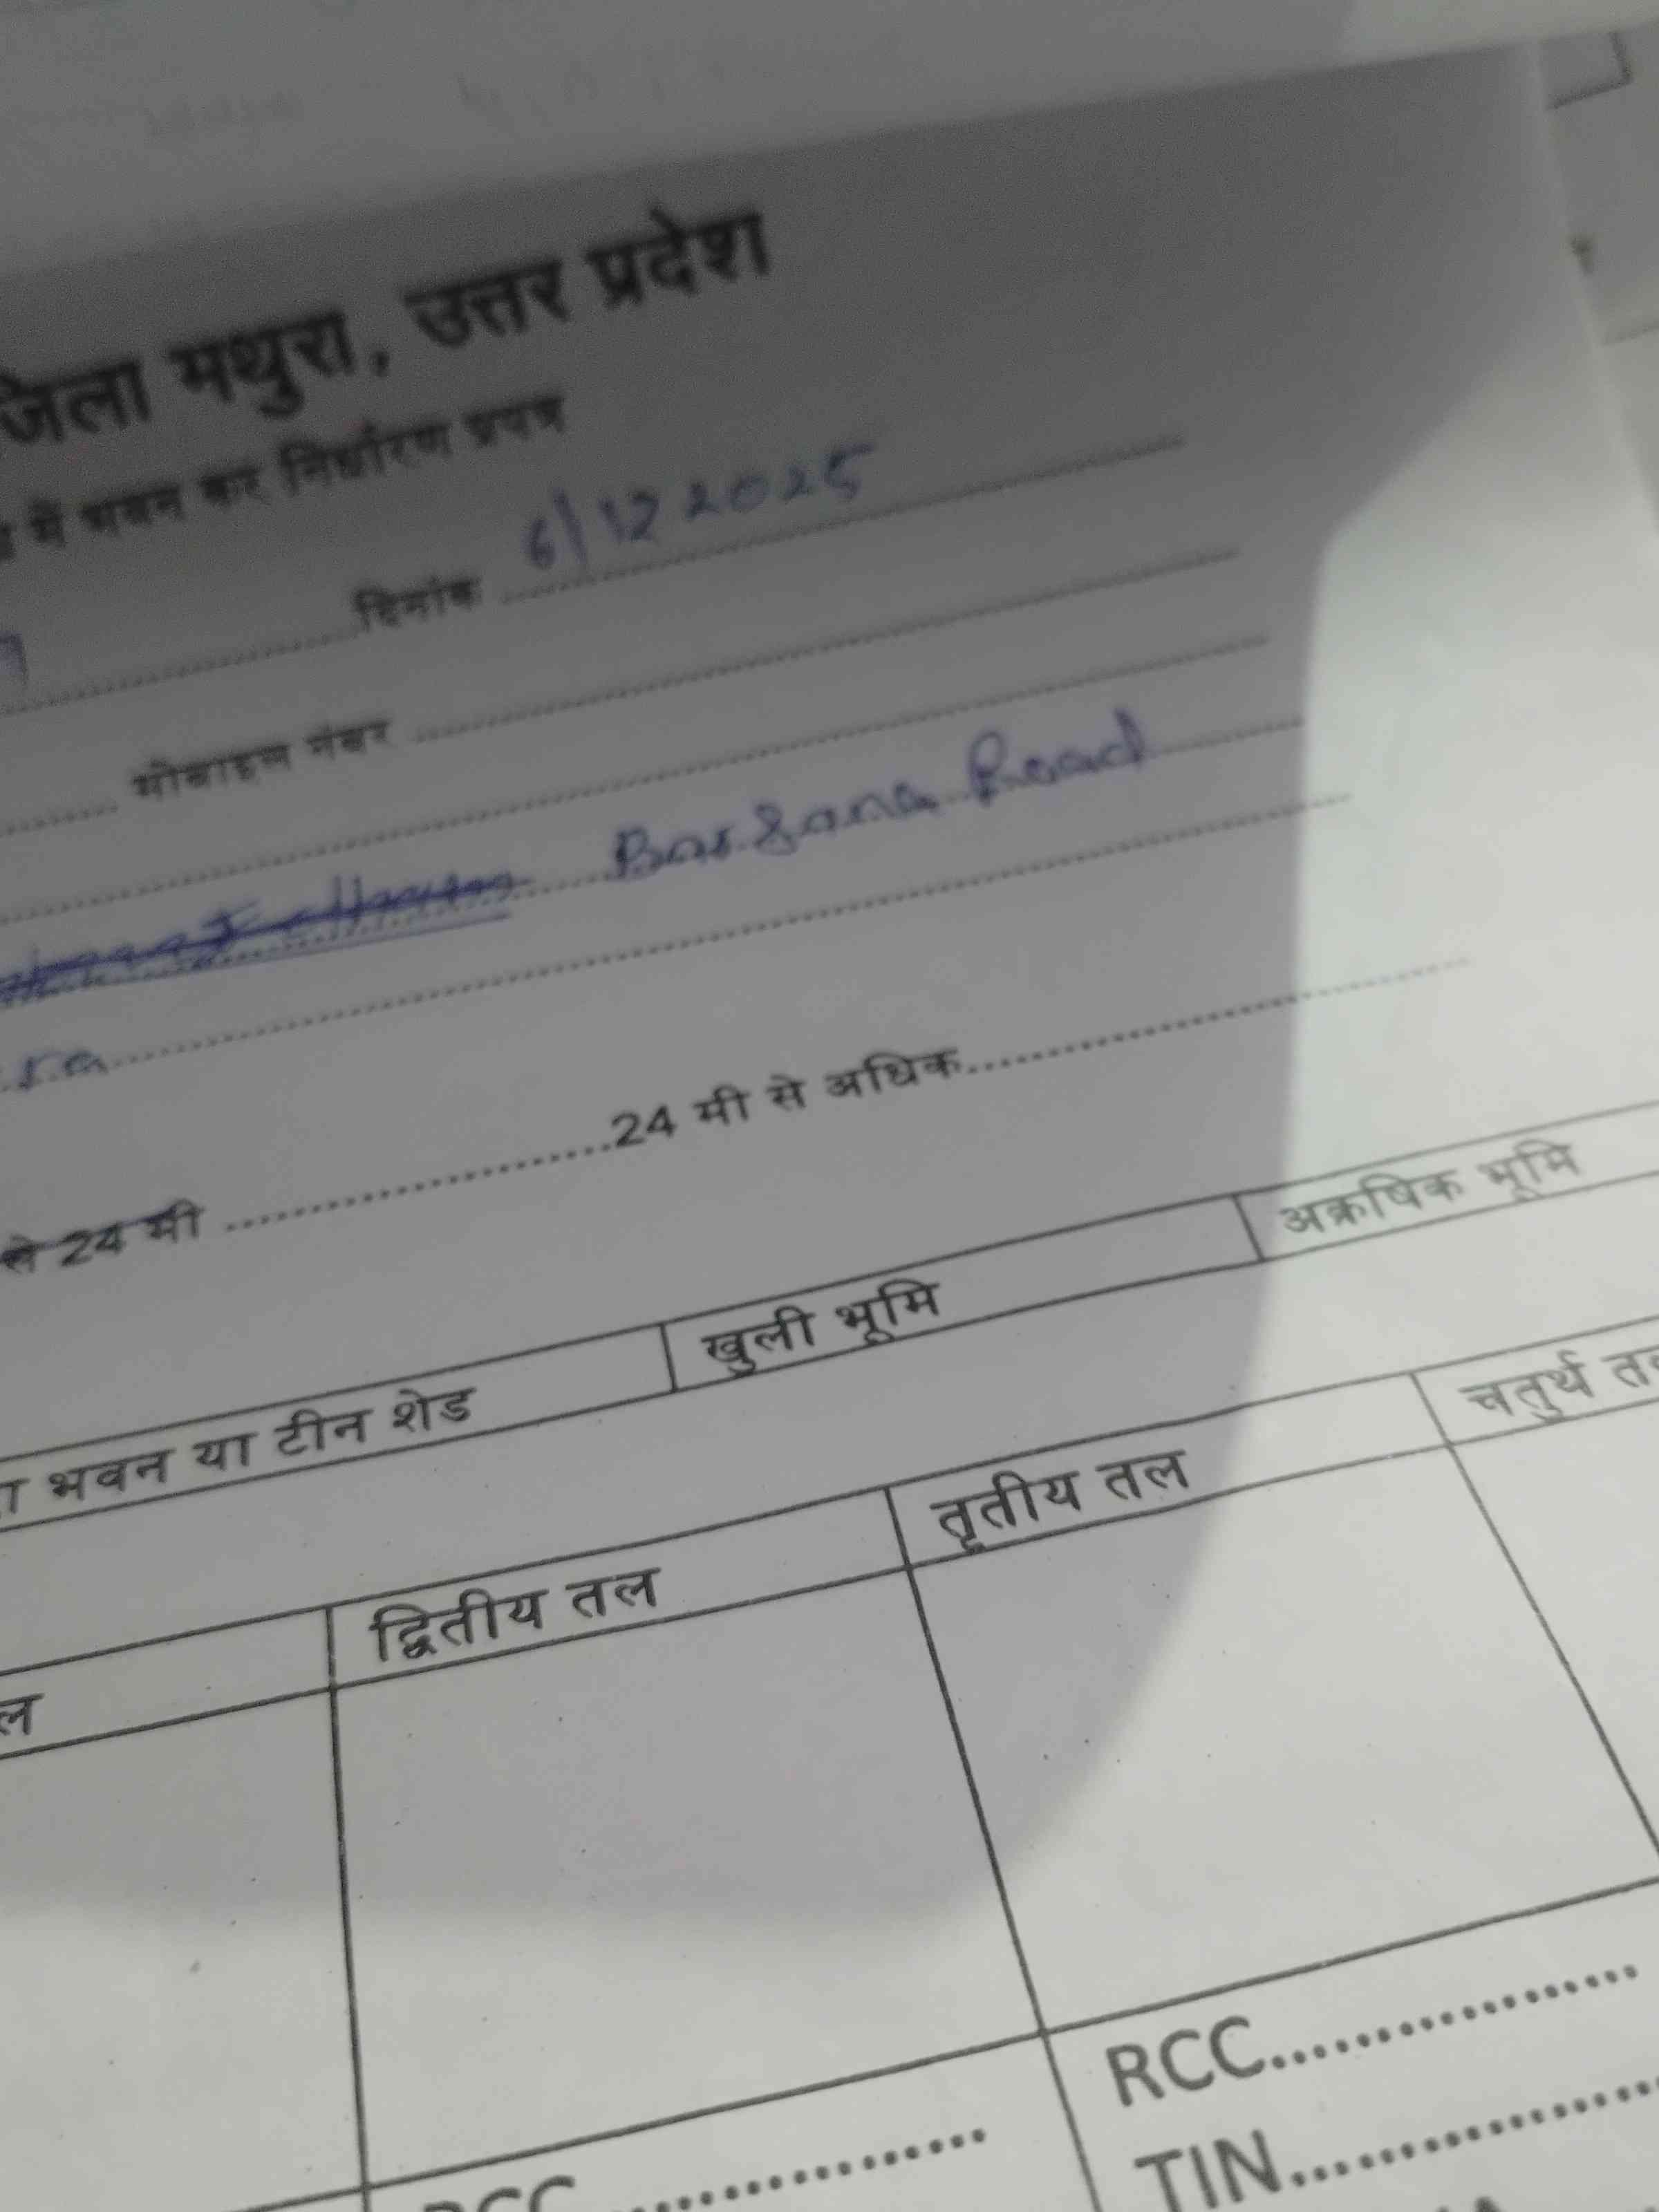 जिला मथुरा, उत्तर प्रदेश
में भवन कर निर्धारण प्रपत्र
दिनांक 6/12 2025
मोबाइल नंबर
Barsana Road
ra
24 मी से अधिक
से 24 मी
भवन या टीन शेड खुली भूमि अक्रषिक भूमि
द्वितीय तल तृतीय तल चतुर्थ
RCC
TIN
RCC